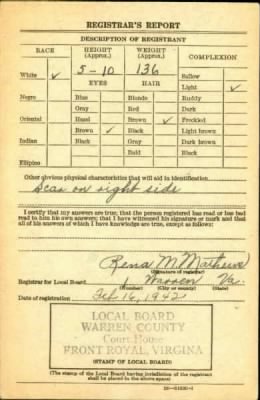 REGISTRAR'S REPORT
DESCRIPTION OF REGISTRANT
RACE HEIGHT (Approx.) WEIGHT (Approx.) COMPLEXION
White ✓ 5-10 136 Sallow
EYES HAIR Light ✓
Negro Blue Blonde Ruddy
Gray Red Dark
Oriental Hazel Brown ✓ Freckled
Brown ✓ Black Light brown
Indian Black Gray Dark brown
Bald Black
Filipino
Other obvious physical characteristics that will aid in identification
Scar on right side
I certify that my answers are true; that the person registered has read or has had
read to him his own answers; that I have witnessed his signature or mark and that
all of his answers of which I have knowledge are true, except as follows:
Rena M. Mathews
(Signature of registrar)
Registrar for Local Board Warren Va.
(Number) (City or county) (State)
Date of registration Feb 16, 1942
LOCAL BOARD
WARREN COUNTY
Court House
FRONT ROYAL, VIRGINA
(STAMP OF LOCAL BOARD)
(The stamp of the Local Board having jurisdiction of the registrant
shall be placed in the above space)